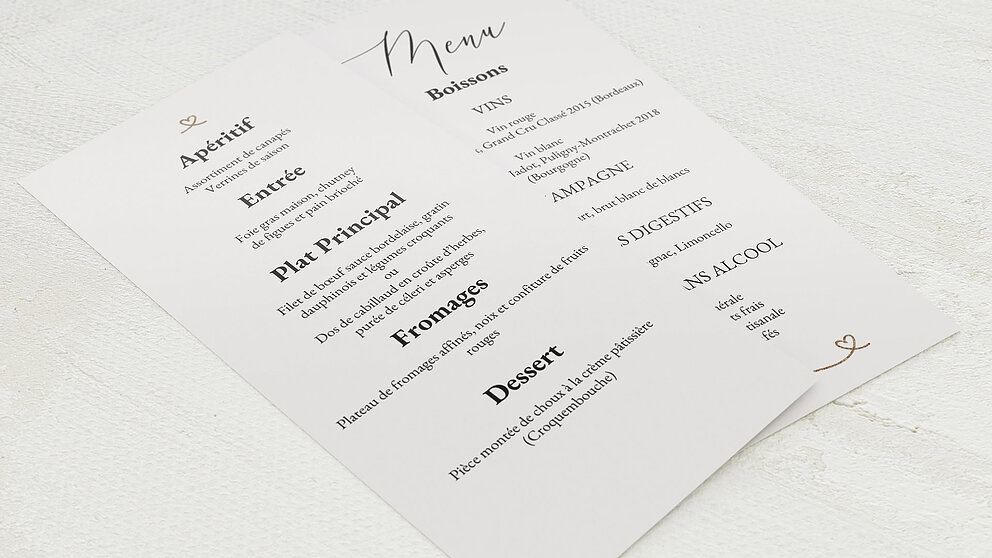 Apéritif
Assortiment de canapés
Verrines de saison
Entrée
Foie gras maison, chutney
de figues et pain brioché
Plat Principal
Filet de bœuf sauce bordelaise, gratin
dauphinois et légumes croquants
ou
Dos de cabillaud en croûte d'herbes,
purée de céleri et asperges
Fromages
Plateau de fromages affinés, noix et confiture de fruits
rouges
Dessert
Pièce montée de choux à la crème pâtissière
(Croquembouche)
Menu
Boissons
VINS
Vin rouge
, Grand Cru Classé 2015 (Bordeaux)
Vin blanc
Puligny-Montrachet 2018
(Bourgogne)
AMPAGNE
brut blanc de blancs
S DIGESTIFS
gnac, Limoncello
NS ALCOOL
érale
ts frais
tisanale
fés